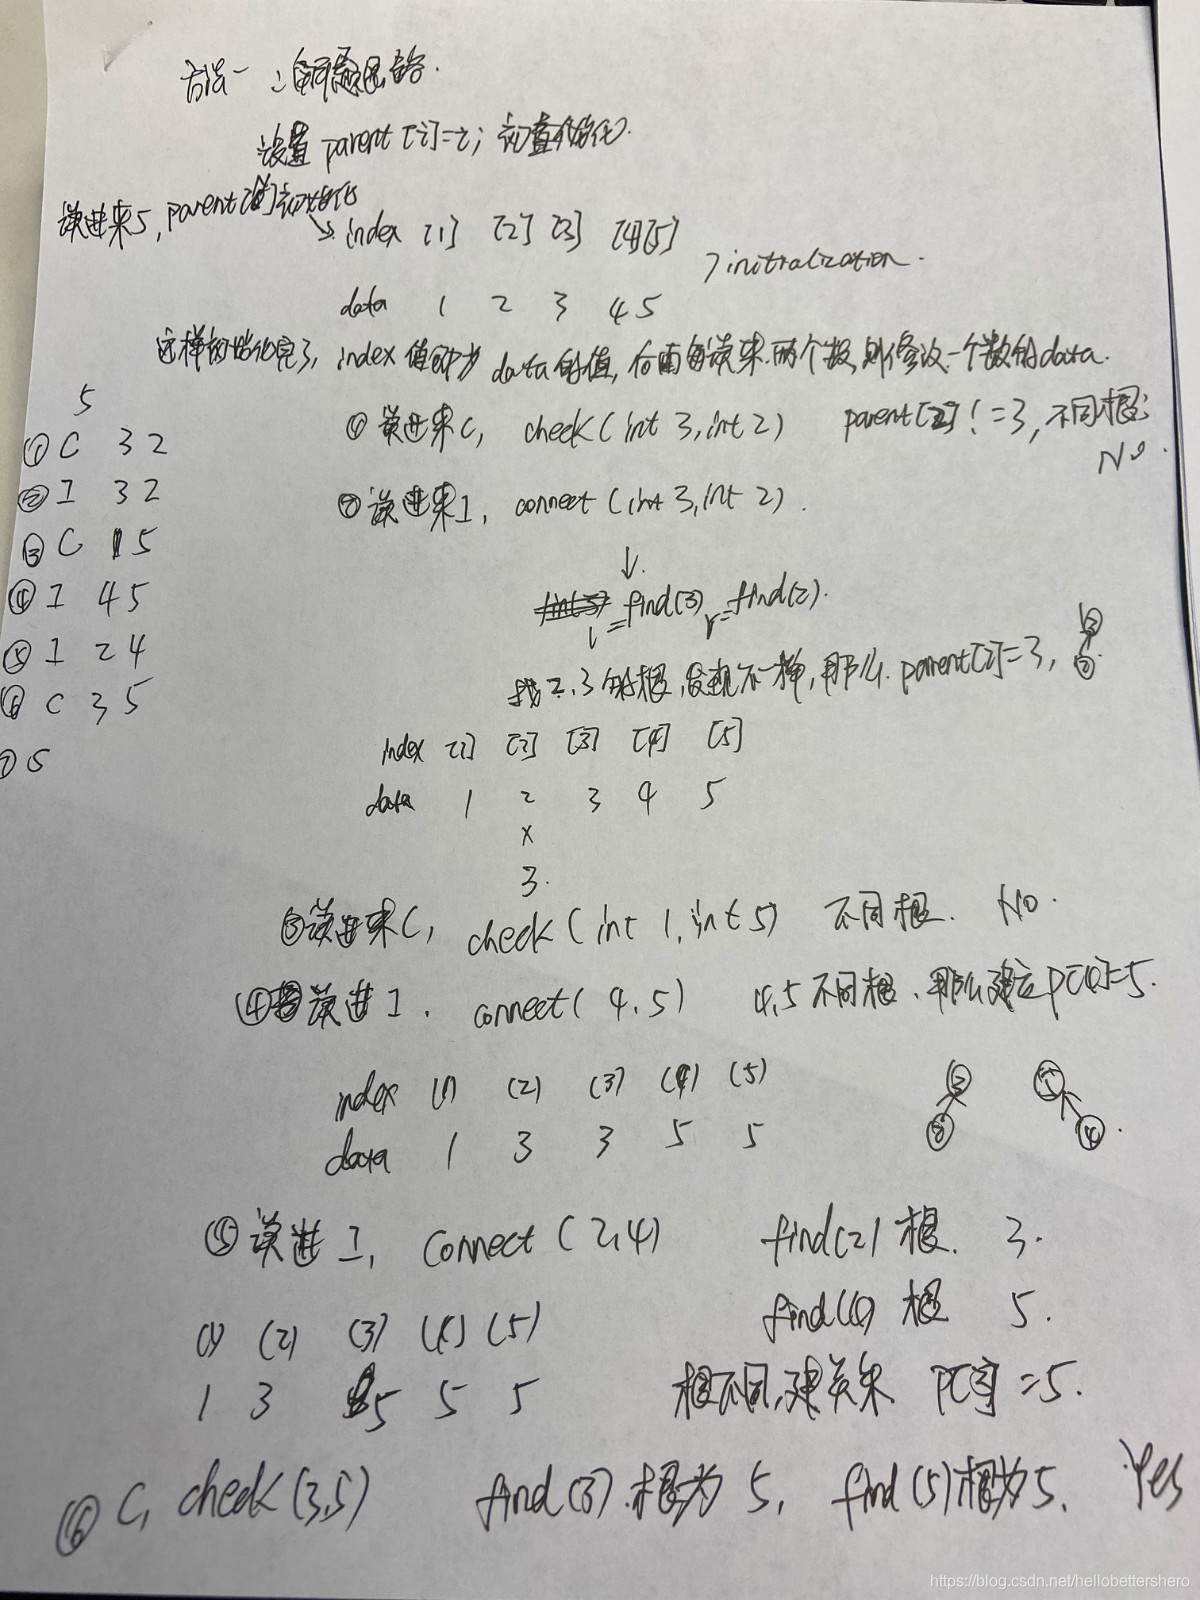 方法一：解题思路.
设置 parent[i]=i; 初始化
读进来5, parent[]初始化
index [1] [2] [3] [4] [5]
initialization.
data 1 2 3 4 5
这样初始化完了, index 值即为 data的值, 后面每读来两个数,则修改一个数的data.
5
① C 3 2
② I 3 2
③ C 1 5
④ I 4 5
⑤ I 2 4
⑥ C 3 5
⑦ S
① 读进来C, check(int 3,int 2) parent[2]!=3, 不同根;
No.
② 读进来I, connect(int 3,int 2).
↓.
l=find(3) r=find(2).
找2.3的根,发现不一样,那么. parent[2]=3, ③ ②
index [1] [2] [3] [4] [5]
data 1 2 3 4 5
x
3.
③读进来C, check(int 1,int 5) 不同根. No.
④读进I. connect(4,5) 4,5不同根,那么建立P[4]=5.
index (1) (2) (3) (4) (5)
data 1 3 3 5 5
③ ②
⑤ ④
⑤读进I, connect(2,4) find(2)根. 3.
find(4)根 5.
(1) (2) (3) (4) (5)
1 3 5 5 5
根不同,建关系 P[3]=5.
⑥ C, check(3,5) find(3).根为 5, find(5)根为5. Yes
https://blog.csdn.net/hellobettershero